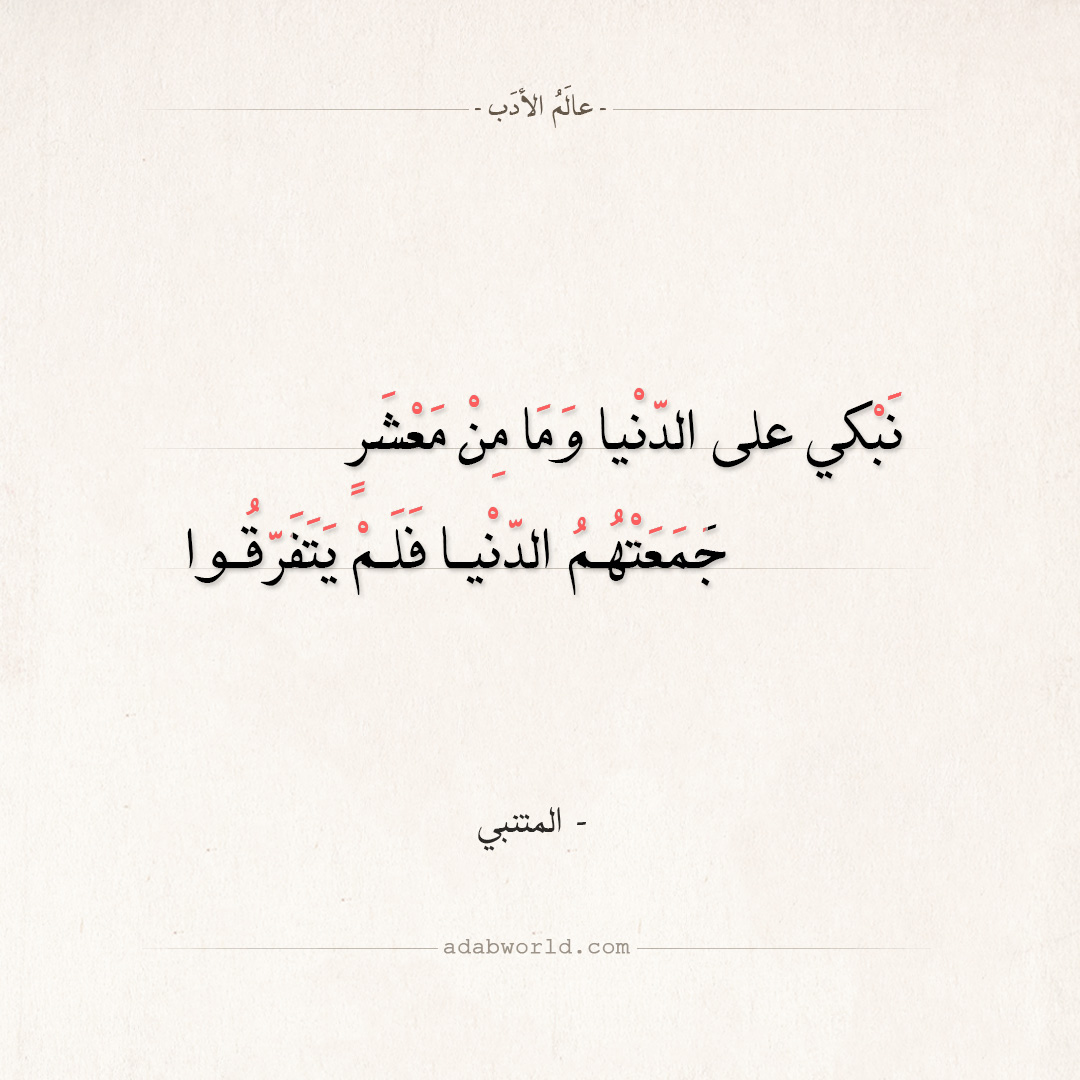 - عالَمُ الأدَب -
نَبْكي على الدّنْيا وَمَا مِنْ مَعْشَرٍ
جَمَعَتْهُـمُ الدّنْيـا فَلَـمْ يَتَفَرّقُـوا
- المتنبي
adabworld.com